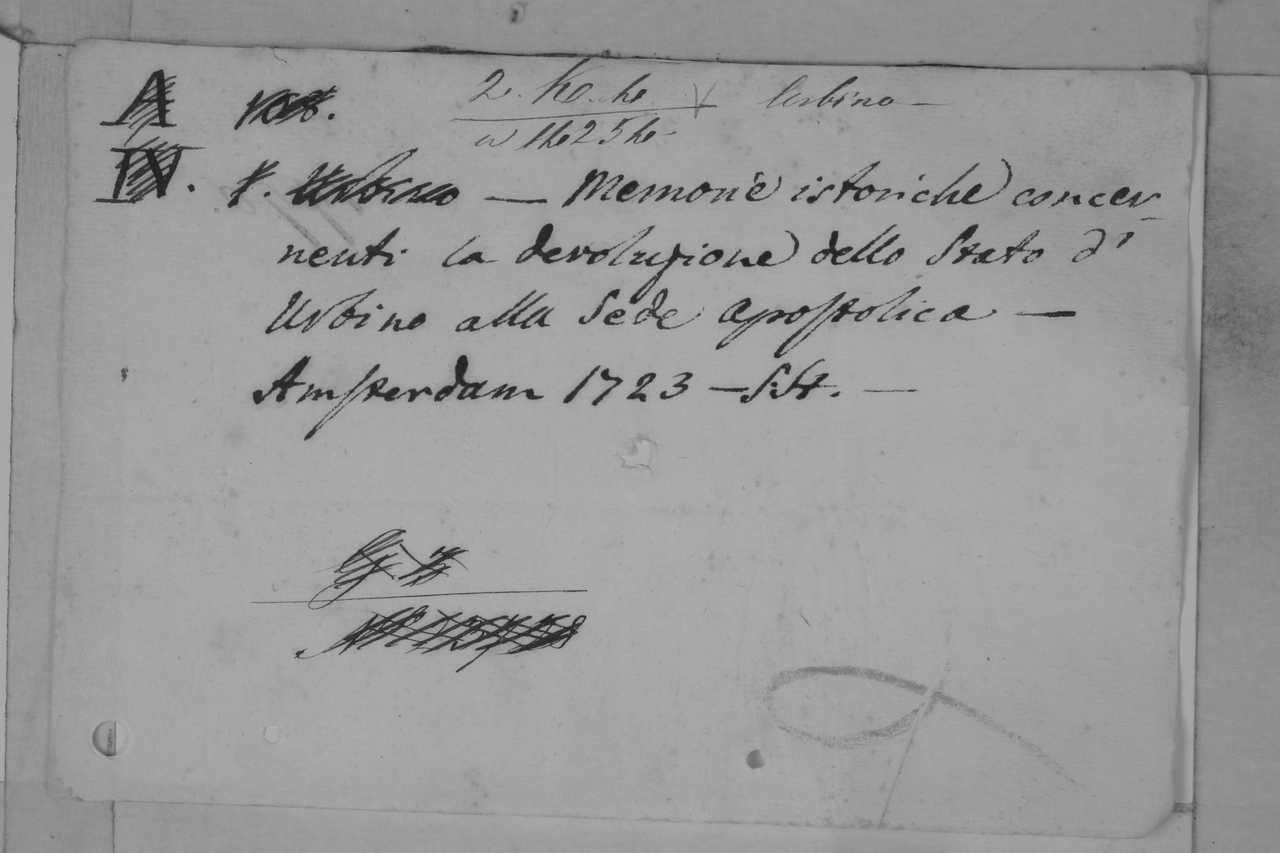 Urbino —
IV. — Memorie istoriche concer-
nenti la devoluzione dello Stato di
Urbino alla Sede apostolica —
Amsterdam 1723 — —